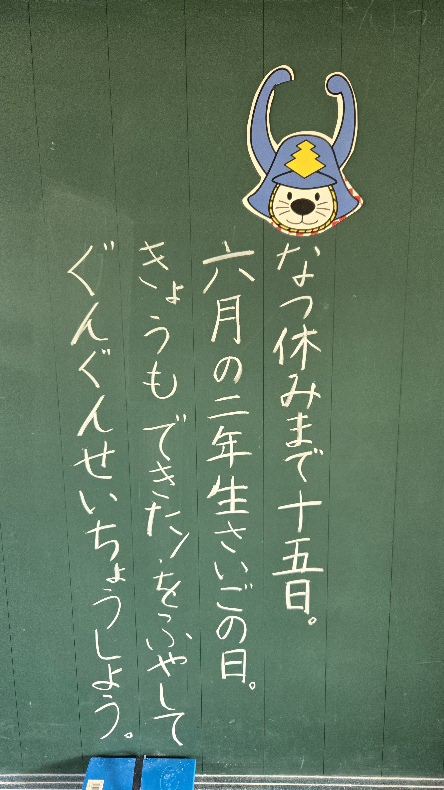 なつ休みまで十五日。
六月の二年生さいごの日。
きょうも できたンをふやして
ぐんぐんせいちょうしよう。